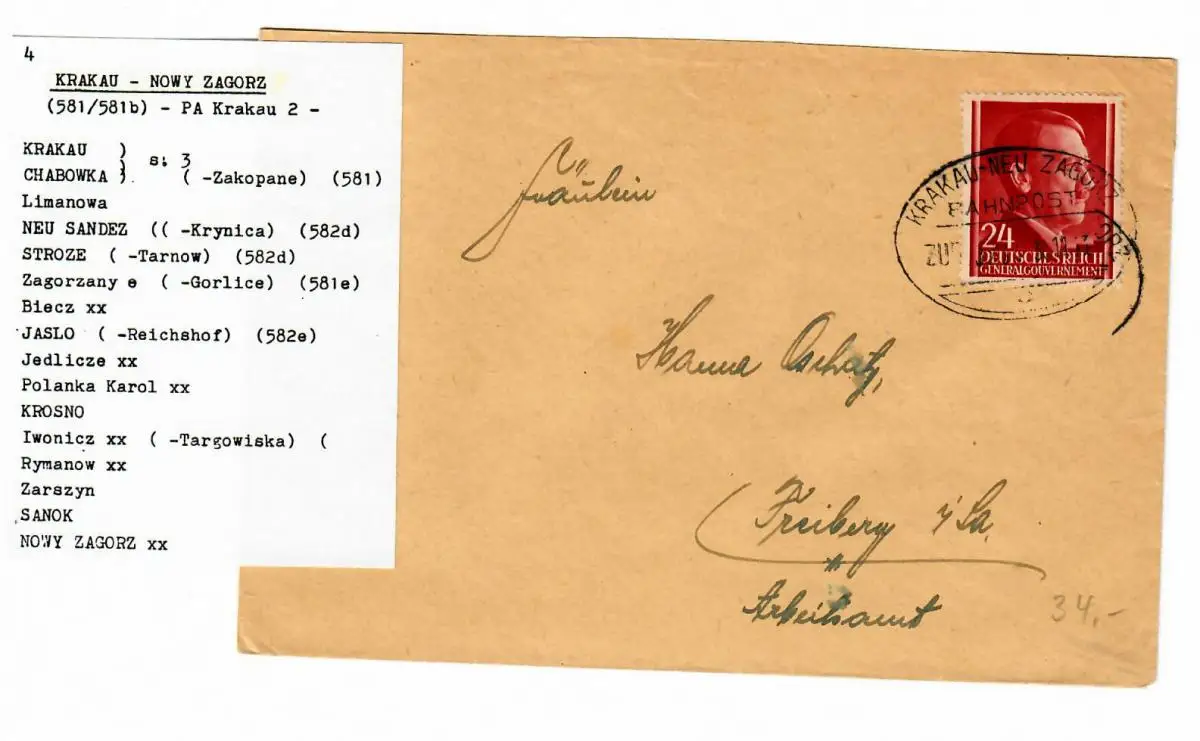 4
KRAKAU - NOWY ZAGORZ
(581/581b) - PA Krakau 2 -
KRAKAU )
) s: 3
CHABOWKA ). ( -Zakopane) (581)
Limanowa
NEU SANDEZ (( -Krynica) (582d)
STROZE ( -Tarnow) (582d)
Zagorzany e ( -Gorlice) (581e)
Biecz xx
JASLO ( -Reichshof) (582e)
Jedlicze xx
Polanka Karol xx
KROSNO
Iwonicz xx ( -Targowiska) (
Rymanow xx
Zarszyn
SANOK
NOWY ZAGORZ xx
KRAKAU-NEU ZAGORZ
BAHNPOST
24
DEUTSCHES REICH
GENERALGOUVERNEMENT
Fräulein
Hanna Oschatz,
Freiberg i/Sa.
Arbeitsamt
34,-